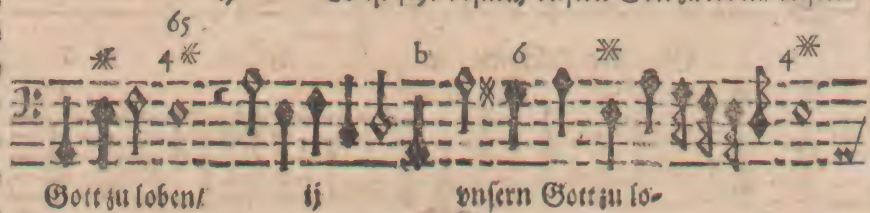 65
4 b 6 4
Gott zu loben/ ij vnsern Gott zu lo-